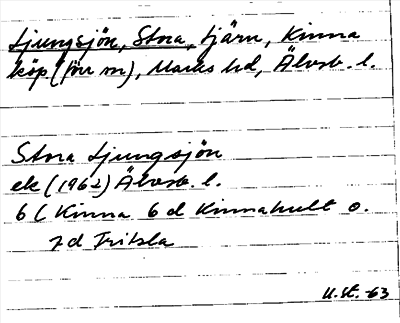 Ljungsjön, Stora, tjärn, Kinna
köp (förr sn), Marks hd, Älvsb. l.
Stora Ljungsjön
ek (1962) Älvsb. l.
6 C Kinna 6 d Kinnahult o.
7d Fritsla
U.St. -63